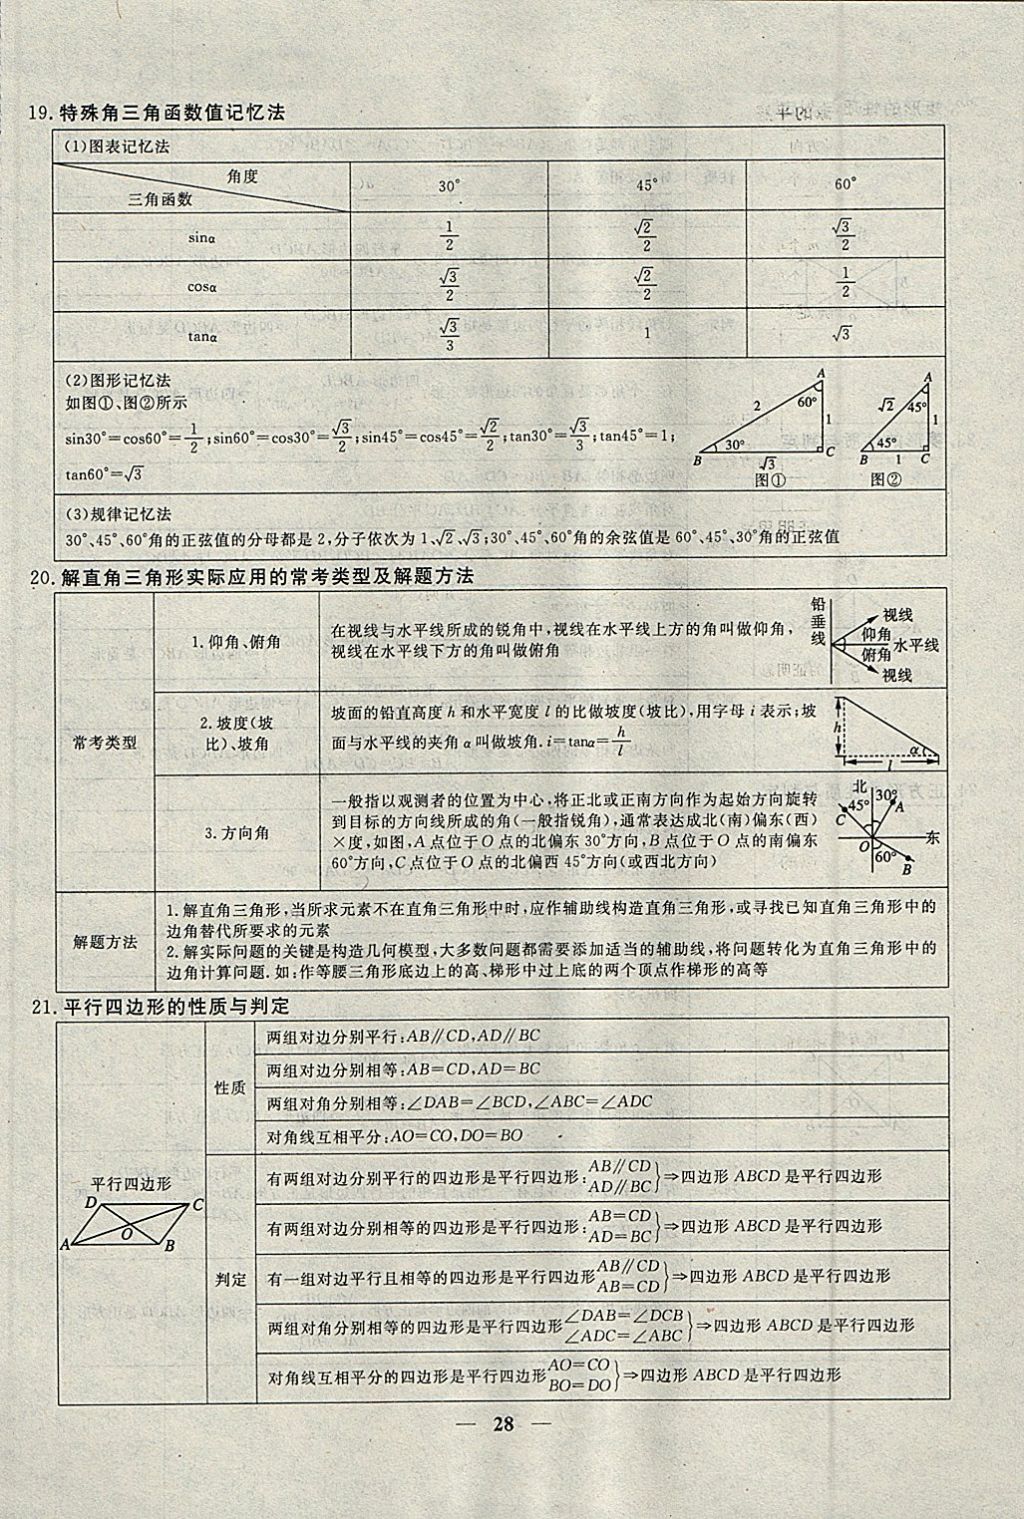 19.特殊角三角函数值记忆法
(1)图表记忆法
角度
三角函数
30° 45° 60°
sinα 1/2 √2/2 √3/2
cosα √3/2 √2/2 1/2
tanα √3/3 1 √3
(2)图形记忆法
如图①、图②所示
sin30°=cos60°=1/2;sin60°=cos30°=√3/2;sin45°=cos45°=√2/2;tan30°=√3/3;tan45°=1;
tan60°=√3
A 60° 2 1 30° B √3 C
图①
A √2 45° 1 45° B 1 C
图②
(3)规律记忆法
30°、45°、60°角的正弦值的分母都是2,分子依次为1、√2、√3;30°、45°、60°角的余弦值是60°、45°、30°角的正弦值
20.解直角三角形实际应用的常考类型及解题方法
常考类型
1.仰角、俯角
在视线与水平线所成的锐角中,视线在水平线上方的角叫做仰角,
视线在水平线下方的角叫做俯角
铅垂线
视线
仰角
俯角
水平线
视线
2.坡度(坡
比)、坡角
坡面的铅直高度h和水平宽度l的比做坡度(坡比),用字母i表示;坡
面与水平线的夹角α叫做坡角.i=tanα=h/l
h α l
3.方向角
一般指以观测者的位置为中心,将正北或正南方向作为起始方向旋转
到目标的方向线所成的角(一般指锐角),通常表达成北(南)偏东(西)
×度,如图,A点位于O点的北偏东30°方向,B点位于O点的南偏东
60°方向,C点位于O点的北偏西45°方向(或西北方向)
北 45° 30° A C 东 O 60° B
解题方法
1.解直角三角形,当所求元素不在直角三角形中时,应作辅助线构造直角三角形,或寻找已知直角三角形中的
边角替代所要求的元素
2.解实际问题的关键是构造几何模型,大多数问题都需要添加适当的辅助线,将问题转化为直角三角形中的
边角计算问题.如:作等腰三角形底边上的高、梯形中过上底的两个顶点作梯形的高等
21.平行四边形的性质与判定
平行四边形
D C O A B
性质
两组对边分别平行:AB∥CD,AD∥BC
两组对边分别相等:AB=CD,AD=BC
两组对角分别相等:∠DAB=∠BCD,∠ABC=∠ADC
对角线互相平分:AO=CO,DO=BO
判定
有两组对边分别平行的四边形是平行四边形:AB∥CD AD∥BC}⇒四边形ABCD是平行四边形
有两组对边分别相等的四边形是平行四边形:AB=CD AD=BC}⇒四边形ABCD是平行四边形
有一组对边平行且相等的四边形是平行四边形AB∥CD AB=CD}⇒四边形ABCD是平行四边形
两组对角分别相等的四边形是平行四边形∠DAB=∠DCB ∠ADC=∠ABC}⇒四边形ABCD是平行四边形
对角线互相平分的四边形是平行四边形AO=CO BO=DO}⇒四边形ABCD是平行四边形
— 28 —